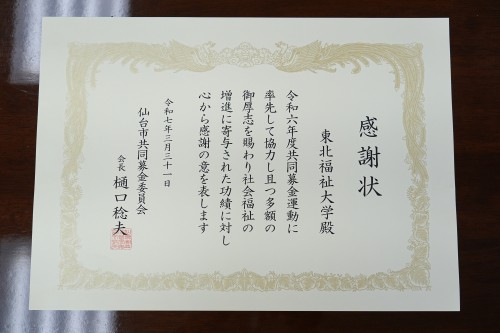 感謝状
東北福祉大学殿
令和六年度共同募金運動に
率先して協力し且つ多額の
御厚志を賜わり社会福祉の
増進に寄与された功績に対し
心から感謝の意を表します
令和七年三月三十一日
仙台市共同募金委員会
会長 樋口稔夫